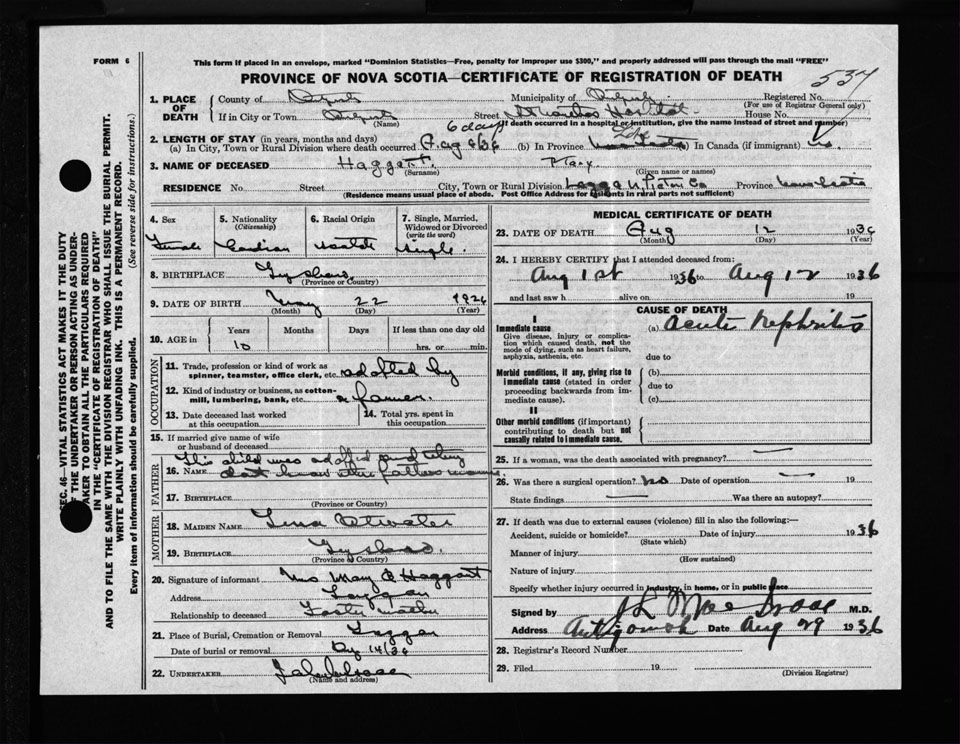 FORM 6
This form if placed in an envelope, marked "Dominion Statistics—Free, penalty for improper use $300," and properly addressed will pass through the mail "FREE"
PROVINCE OF NOVA SCOTIA—CERTIFICATE OF REGISTRATION OF DEATH
537
1. PLACE OF DEATH
County of
Municipality of
Registered No.
(For use of Registrar General only)
If in City or Town
(Name)
Street
House No.
(If death occurred in a hospital or institution, give the name instead of street and number)
2. LENGTH OF STAY (in years, months and days)
6 days
(a) In City, Town or Rural Division where death occurred
(b) In Province
In Canada (if immigrant)
3. NAME OF DECEASED Haggart Mary
(Surname) (Given name or names)
RESIDENCE No. Street City, Town or Rural Division Province Nova Scotia
(Residence means usual place of abode. Post Office Address for residents in rural parts not sufficient)
4. Sex
Female
5. Nationality
(Citizenship)
Canadian
6. Racial Origin
7. Single, Married, Widowed or Divorced
(write the word)
Single
8. BIRTHPLACE
(Province or Country)
9. DATE OF BIRTH May 22 1926
(Month) (Day) (Year)
10. AGE in
Years Months Days If less than one day old
10 hrs. or min.
OCCUPATION
11. Trade, profession or kind of work as spinner, teamster, office clerk, etc. adopted by
12. Kind of industry or business, as cotton-mill, lumbering, bank, etc. a farmer
13. Date deceased last worked at this occupation
14. Total yrs. spent in this occupation
15. If married give name of wife or husband of deceased
FATHER
This child was adopted and they
16. NAME dont know the fathers name
17. BIRTHPLACE
(Province or Country)
MOTHER
18. MAIDEN NAME
19. BIRTHPLACE
(Province or Country)
20. Signature of informant Mrs Mary Haggart
Address
Relationship to deceased Foster mother
21. Place of Burial, Cremation or Removal
Date of burial or removal 14/36
22. UNDERTAKER
(Name and address)
MEDICAL CERTIFICATE OF DEATH
23. DATE OF DEATH Aug 12 1936
(Month) (Day) (Year)
24. I HEREBY CERTIFY that I attended deceased from:
Aug 1st 1936 to Aug 12 1936
and last saw h alive on 19
CAUSE OF DEATH
I
Immediate cause
Give disease, injury or complication which caused death, not the mode of dying, such as heart failure, asphyxia, asthenia, etc.
(a) Acute Nephritis
due to
Morbid conditions, if any, giving rise to immediate cause (stated in order proceeding backwards from immediate cause).
(b)
due to
(c)
II
Other morbid conditions (if important) contributing to death but not causally related to immediate cause.
25. If a woman, was the death associated with pregnancy?
26. Was there a surgical operation? no Date of operation 19
State findings Was there an autopsy?
27. If death was due to external causes (violence) fill in also the following:—
Accident, suicide or homicide? Date of injury 1936
(State which)
Manner of injury
(How sustained)
Nature of injury
Specify whether injury occurred in industry, in home, or in public place
Signed by M.D.
Address Antigonish Date Aug 29 1936
28. Registrar's Record Number
29. Filed 19
(Division Registrar)
SEC. 46—VITAL STATISTICS ACT MAKES IT THE DUTY OF THE UNDERTAKER OR PERSON ACTING AS UNDERTAKER TO OBTAIN ALL THE PARTICULARS REQUIRED IN THE "CERTIFICATE OF REGISTRATION OF DEATH"
AND TO FILE THE SAME WITH THE DIVISION REGISTRAR WHO SHALL ISSUE THE BURIAL PERMIT.
WRITE PLAINLY WITH UNFADING INK. THIS IS A PERMANENT RECORD.
Every item of information should be carefully supplied. (See reverse side for instructions.)